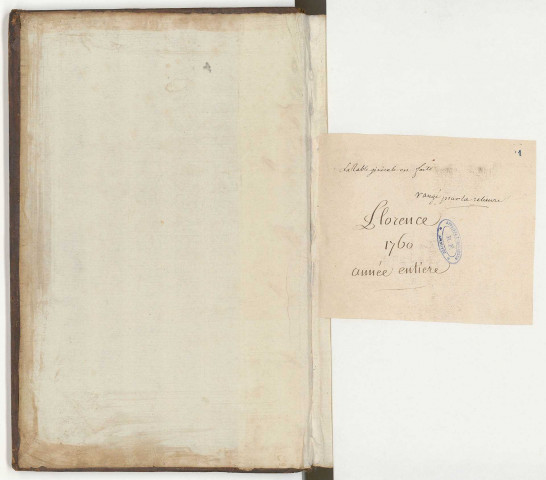 1
La table générale est faite
rangé pour la reliure
Florence
1760
année entière